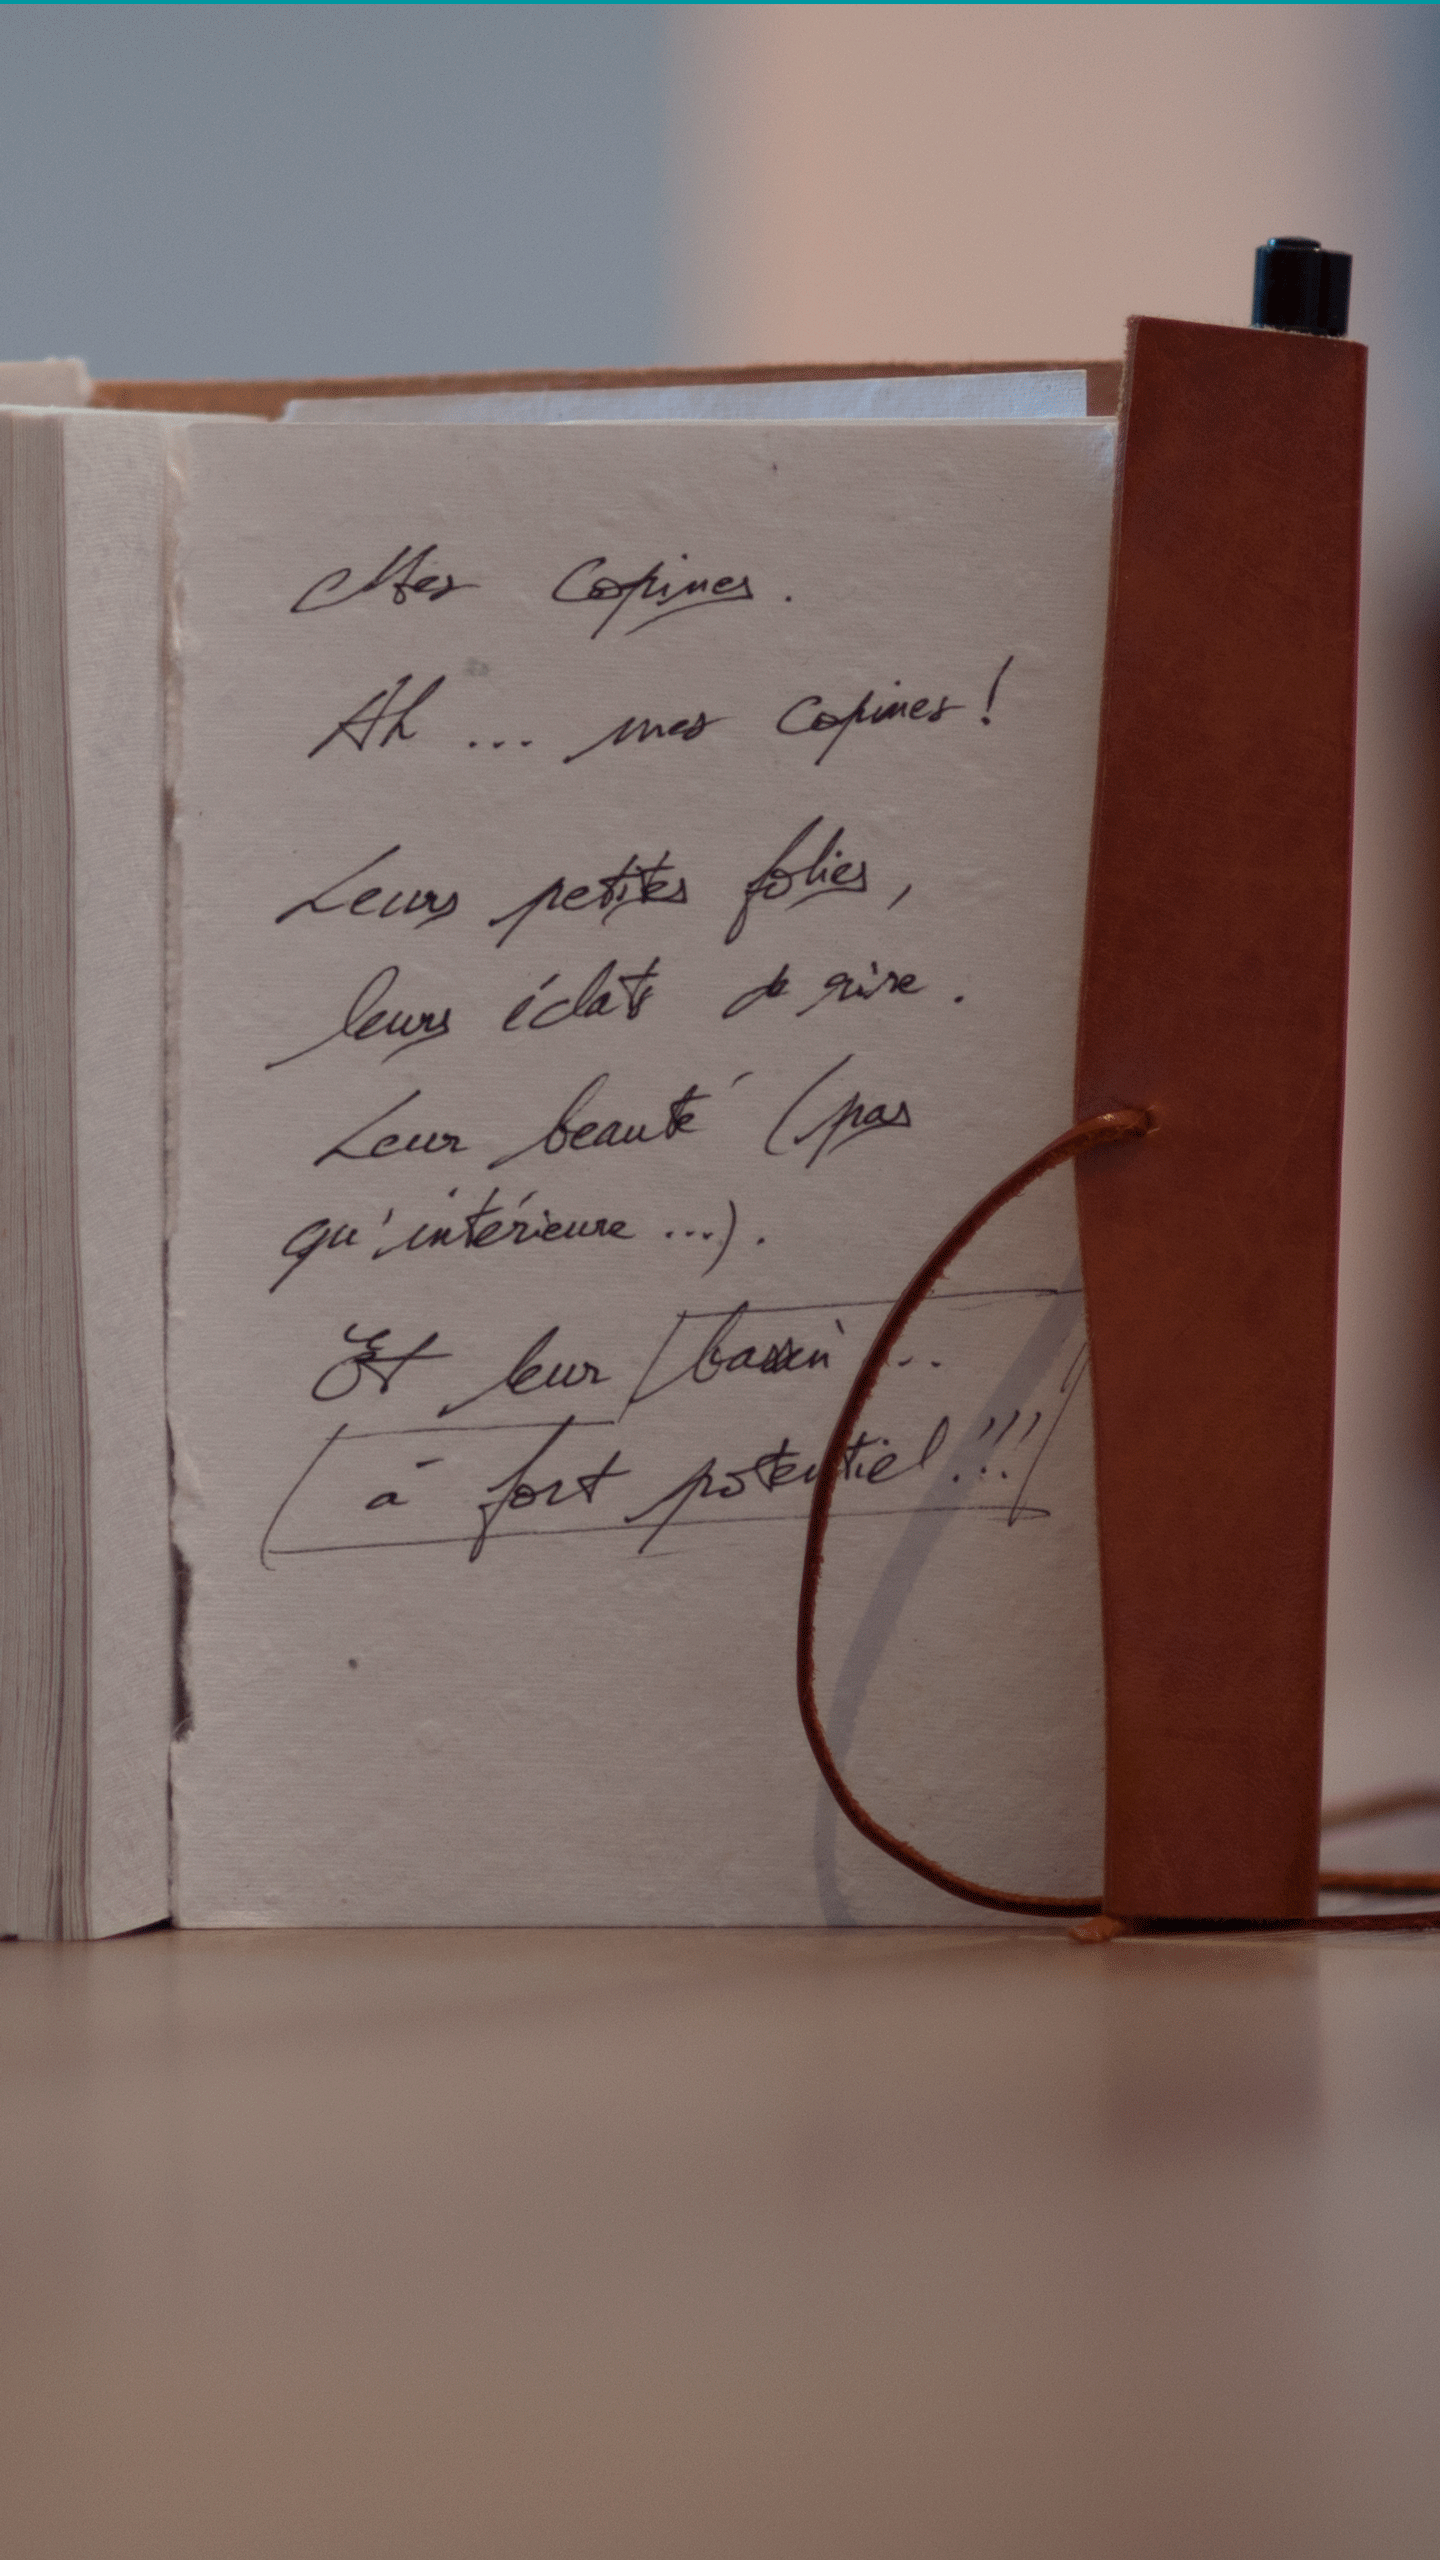 Mes Copines.
Ah... mes copines!
Leurs petites folies,
leurs éclats de rire.
Leur beauté (pas
qu'intérieure...).
Et leur bassin...
à fort potentiel!!!